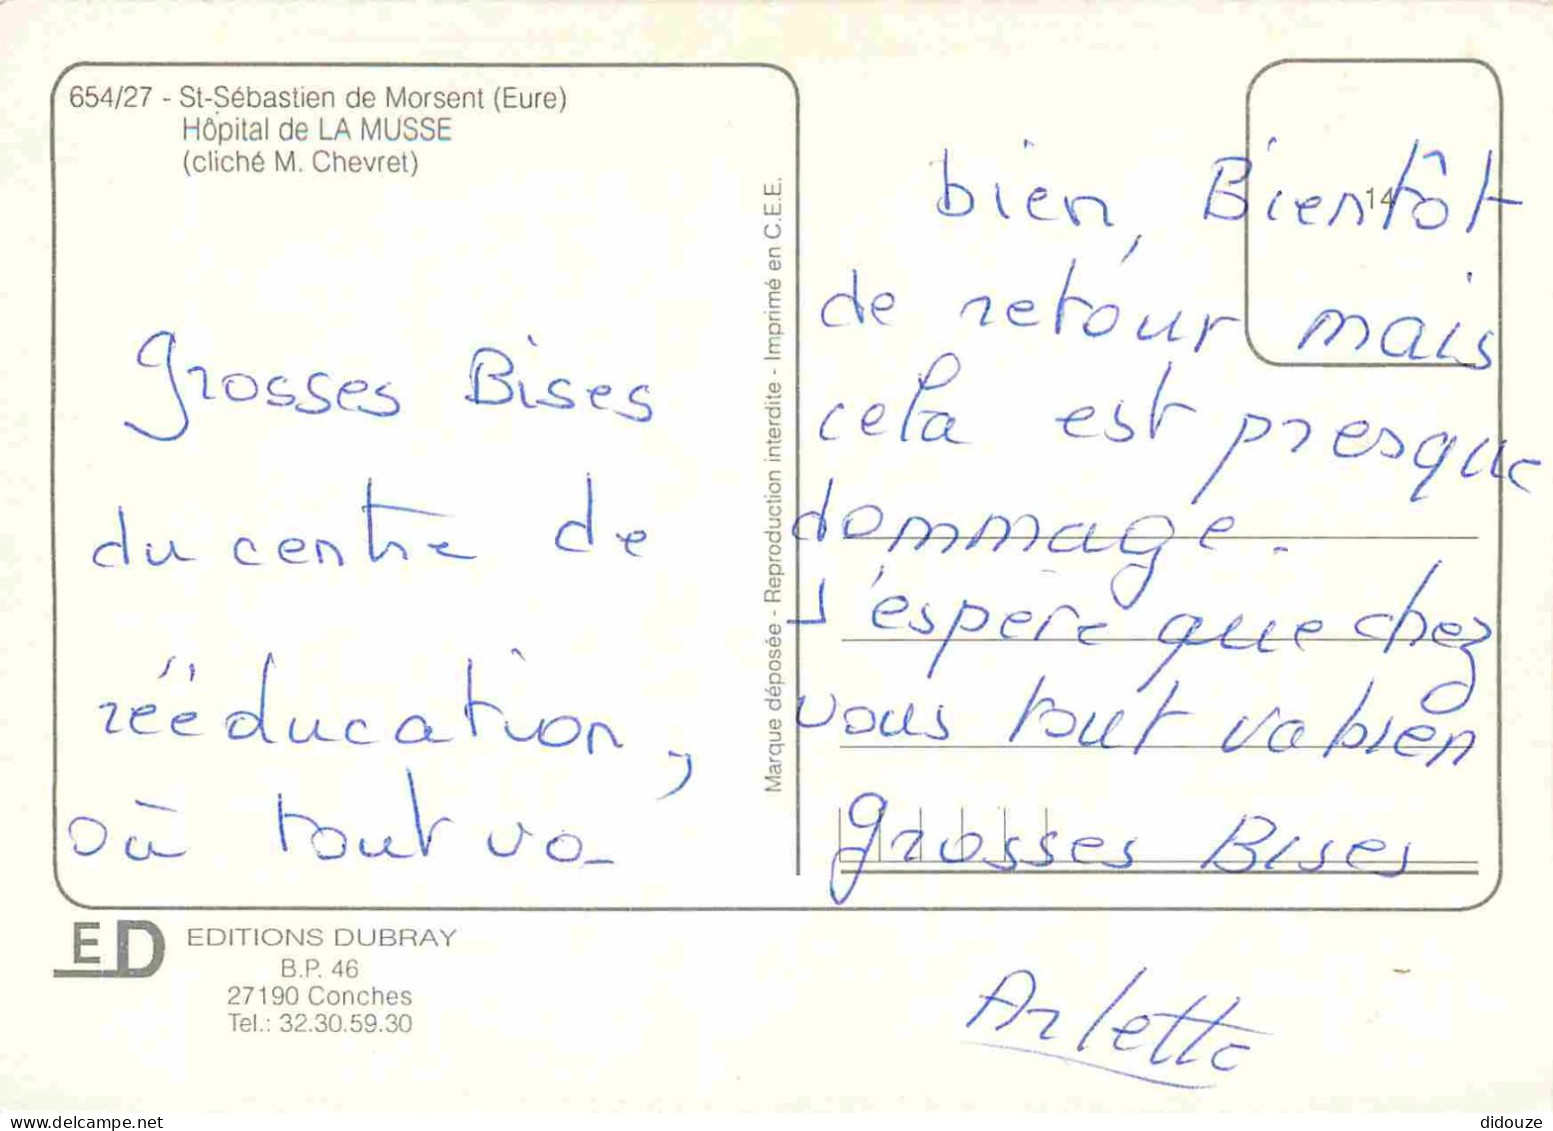 654/27 - St-Sébastien de Morsent (Eure)
Hôpital de LA MUSSE
(cliché M. Chevret)
Grosses Bises
du centre de
rééducation,
où tout va
Marque déposée - Reproduction interdite - Imprimé en C.E.E.
14
bien, Bientôt
de retour mais
cela est presque
dommage.
J'espère que chez
vous tout va bien
Grosses Bises
Arlette
ED
EDITIONS DUBRAY
B.P. 46
27190 Conches
Tel.: 32.30.59.30
didouze